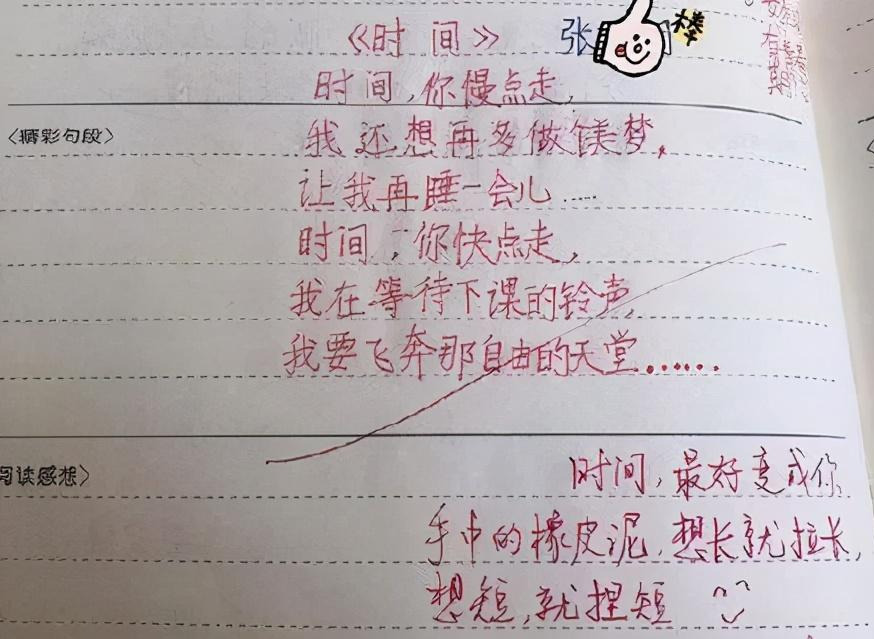 《时间》 张 楼
时间,你慢点走,
〈精彩句段〉 我还想再多做馐美梦,
让我再睡一会儿……
时间,你快点走,
我在等待下课的铃声,
我要飞奔那自由的天堂……
阅读感想〉 时间,最好变成你
手中的橡皮泥,想长就拉长,
想短,就捏短